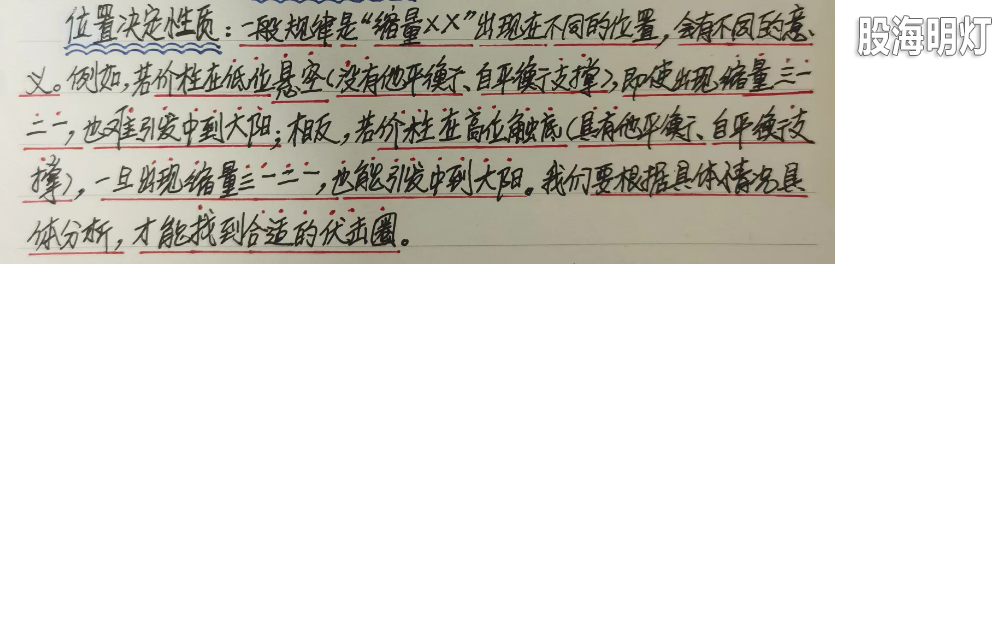 位置决定性质：一般规律是“缩量××”出现在不同的位置，会有不同的意
义。例如，若价柱在低位悬空（没有他平衡、自平衡支撑），即使出现缩量三一
二一，也难引发中到大阳；相反，若价柱在高位触底（具有他平衡、自平衡支
撑），一旦出现缩量三一二一，也能引发中到大阳。我们要根据具体情况具
体分析，才能找到合适的伏击圈。
股海明灯